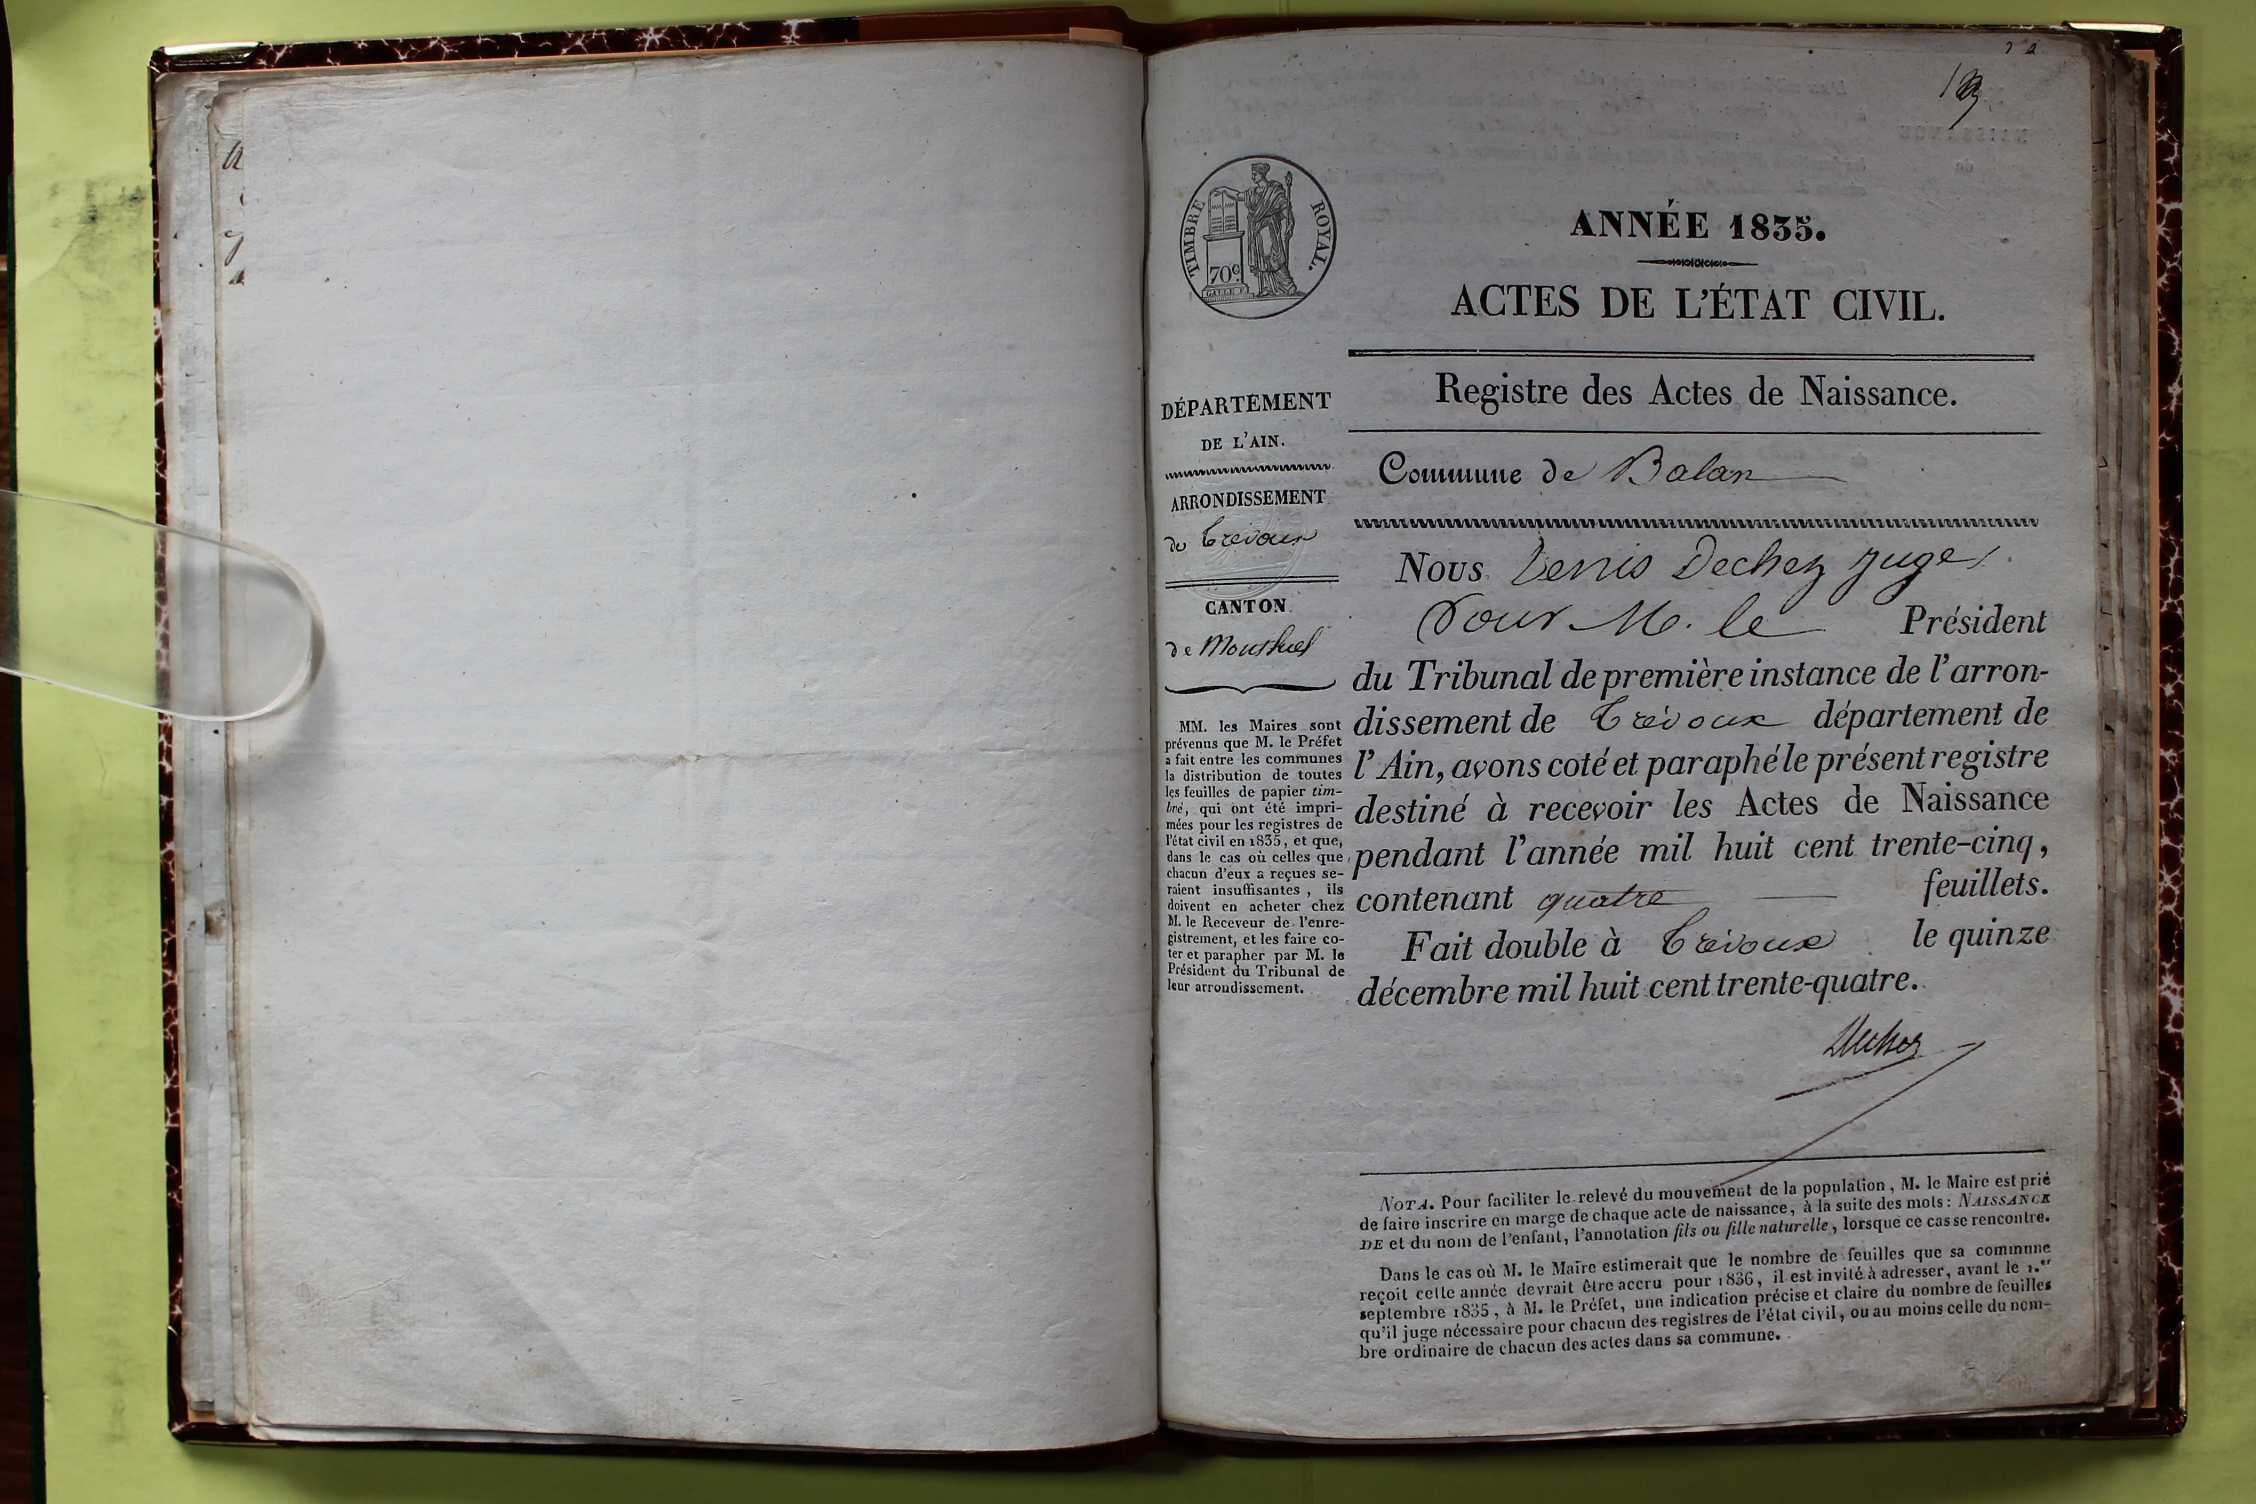 TIMBRE ROYAL.
70c.
ANNÉE 1835.
ACTES DE L'ÉTAT CIVIL.
Registre des Actes de Naissance.
DÉPARTEMENT
DE L'AIN.
ARRONDISSEMENT
de Trévoux
CANTON
de Montluel
MM. les Maires sont
prévenus que M. le Préfet
a fait entre les communes
la distribution de toutes
les feuilles de papier tim-
bré, qui ont été impri-
mées pour les registres de
l'état civil en 1835, et que,
dans le cas où celles que
chacun d'eux a reçues se-
raient insuffisantes, ils
doivent en acheter chez
M. le Receveur de l'enre-
gistrement, et les faire co-
ter et parapher par M. le
Président du Tribunal de
leur arrondissement.
Commune de Balan
Nous Denis Dechez juge
Pour M. le Président
du Tribunal de première instance de l'arron-
dissement de Trévoux département de
l'Ain, avons coté et paraphé le présent registre
destiné à recevoir les Actes de Naissance
pendant l'année mil huit cent trente-cinq,
contenant quatre feuillets.
Fait double à Trévoux le quinze
décembre mil huit cent trente-quatre.
Dechez
NOTA. Pour faciliter le relevé du mouvement de la population, M. le Maire est prié
de faire inscrire en marge de chaque acte de naissance, à la suite des mots: NAISSANCE
DE et du nom de l'enfant, l'annotation fils ou fille naturelle, lorsque ce cas se rencontre.
Dans le cas où M. le Maire estimerait que le nombre de feuilles que sa commune
reçoit cette année devrait être accru pour 1836, il est invité à adresser, avant le 1.er
septembre 1835, à M. le Préfet, une indication précise et claire du nombre de feuilles
qu'il juge nécessaire pour chacun des registres de l'état civil, ou au moins celle du nom-
bre ordinaire de chacun des actes dans sa commune.